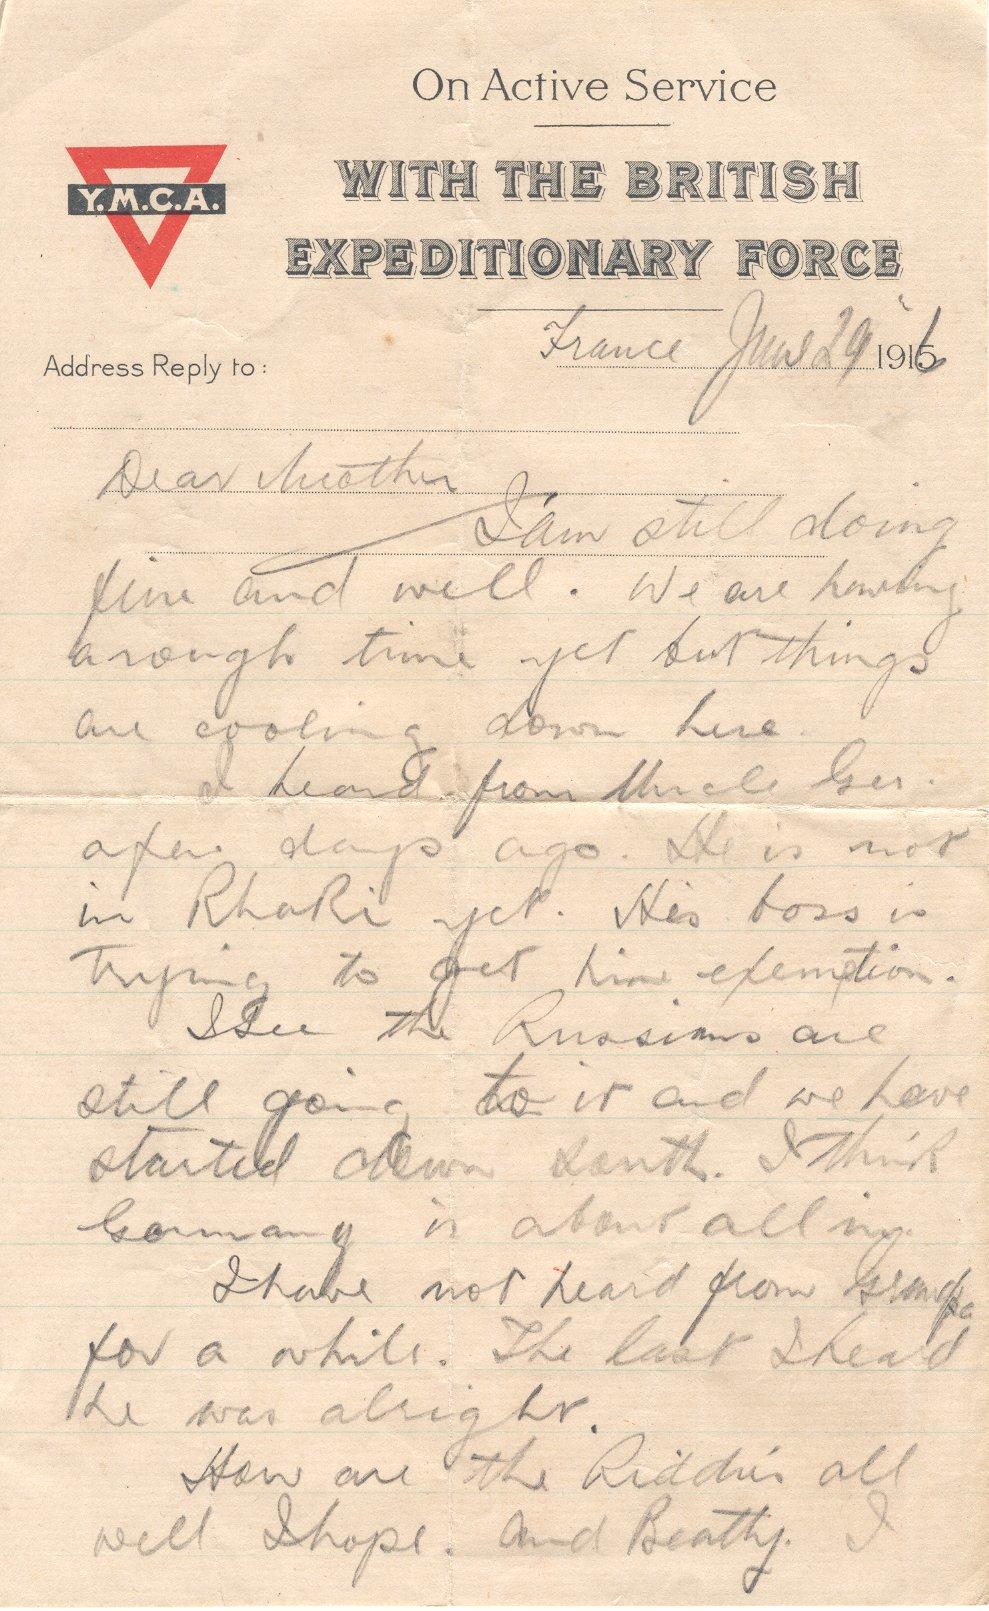 On Active Service
WITH THE BRITISH
EXPEDITIONARY FORCE
Y.M.C.A.
France June 29 1916
Address Reply to:
Dear Mother
I am still doing
fine and well. We are having
a rough time yet but things
are cooling down here.
I heard from Uncle Geo.
a few days ago. He is not
in Khaki yet. His boss is
trying to get him exemtion.
I See the Russians are
still going to it and we have
started down south. I think
Germany is about all in.
I have not heard from Grandpa
for a while. The last I heard
he was alright.
How are the Kiddies all
well I hope. And Beatty. I